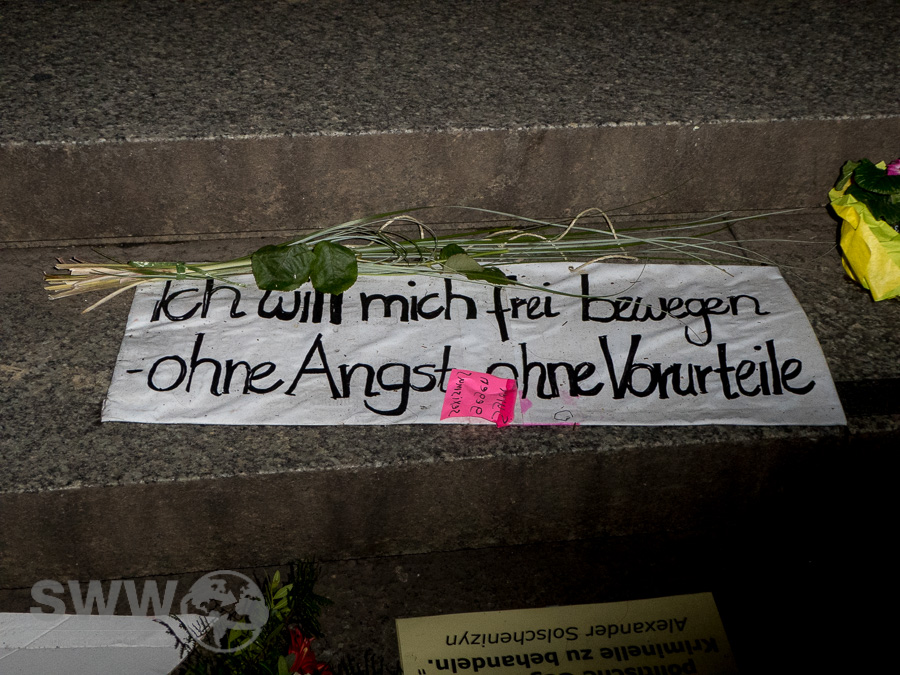 Ich will mich frei bewegen
-ohne Angst ohne Vorurteile
politische
Kriminelle zu behandeln."
Alexander Solschenizyn
SWW